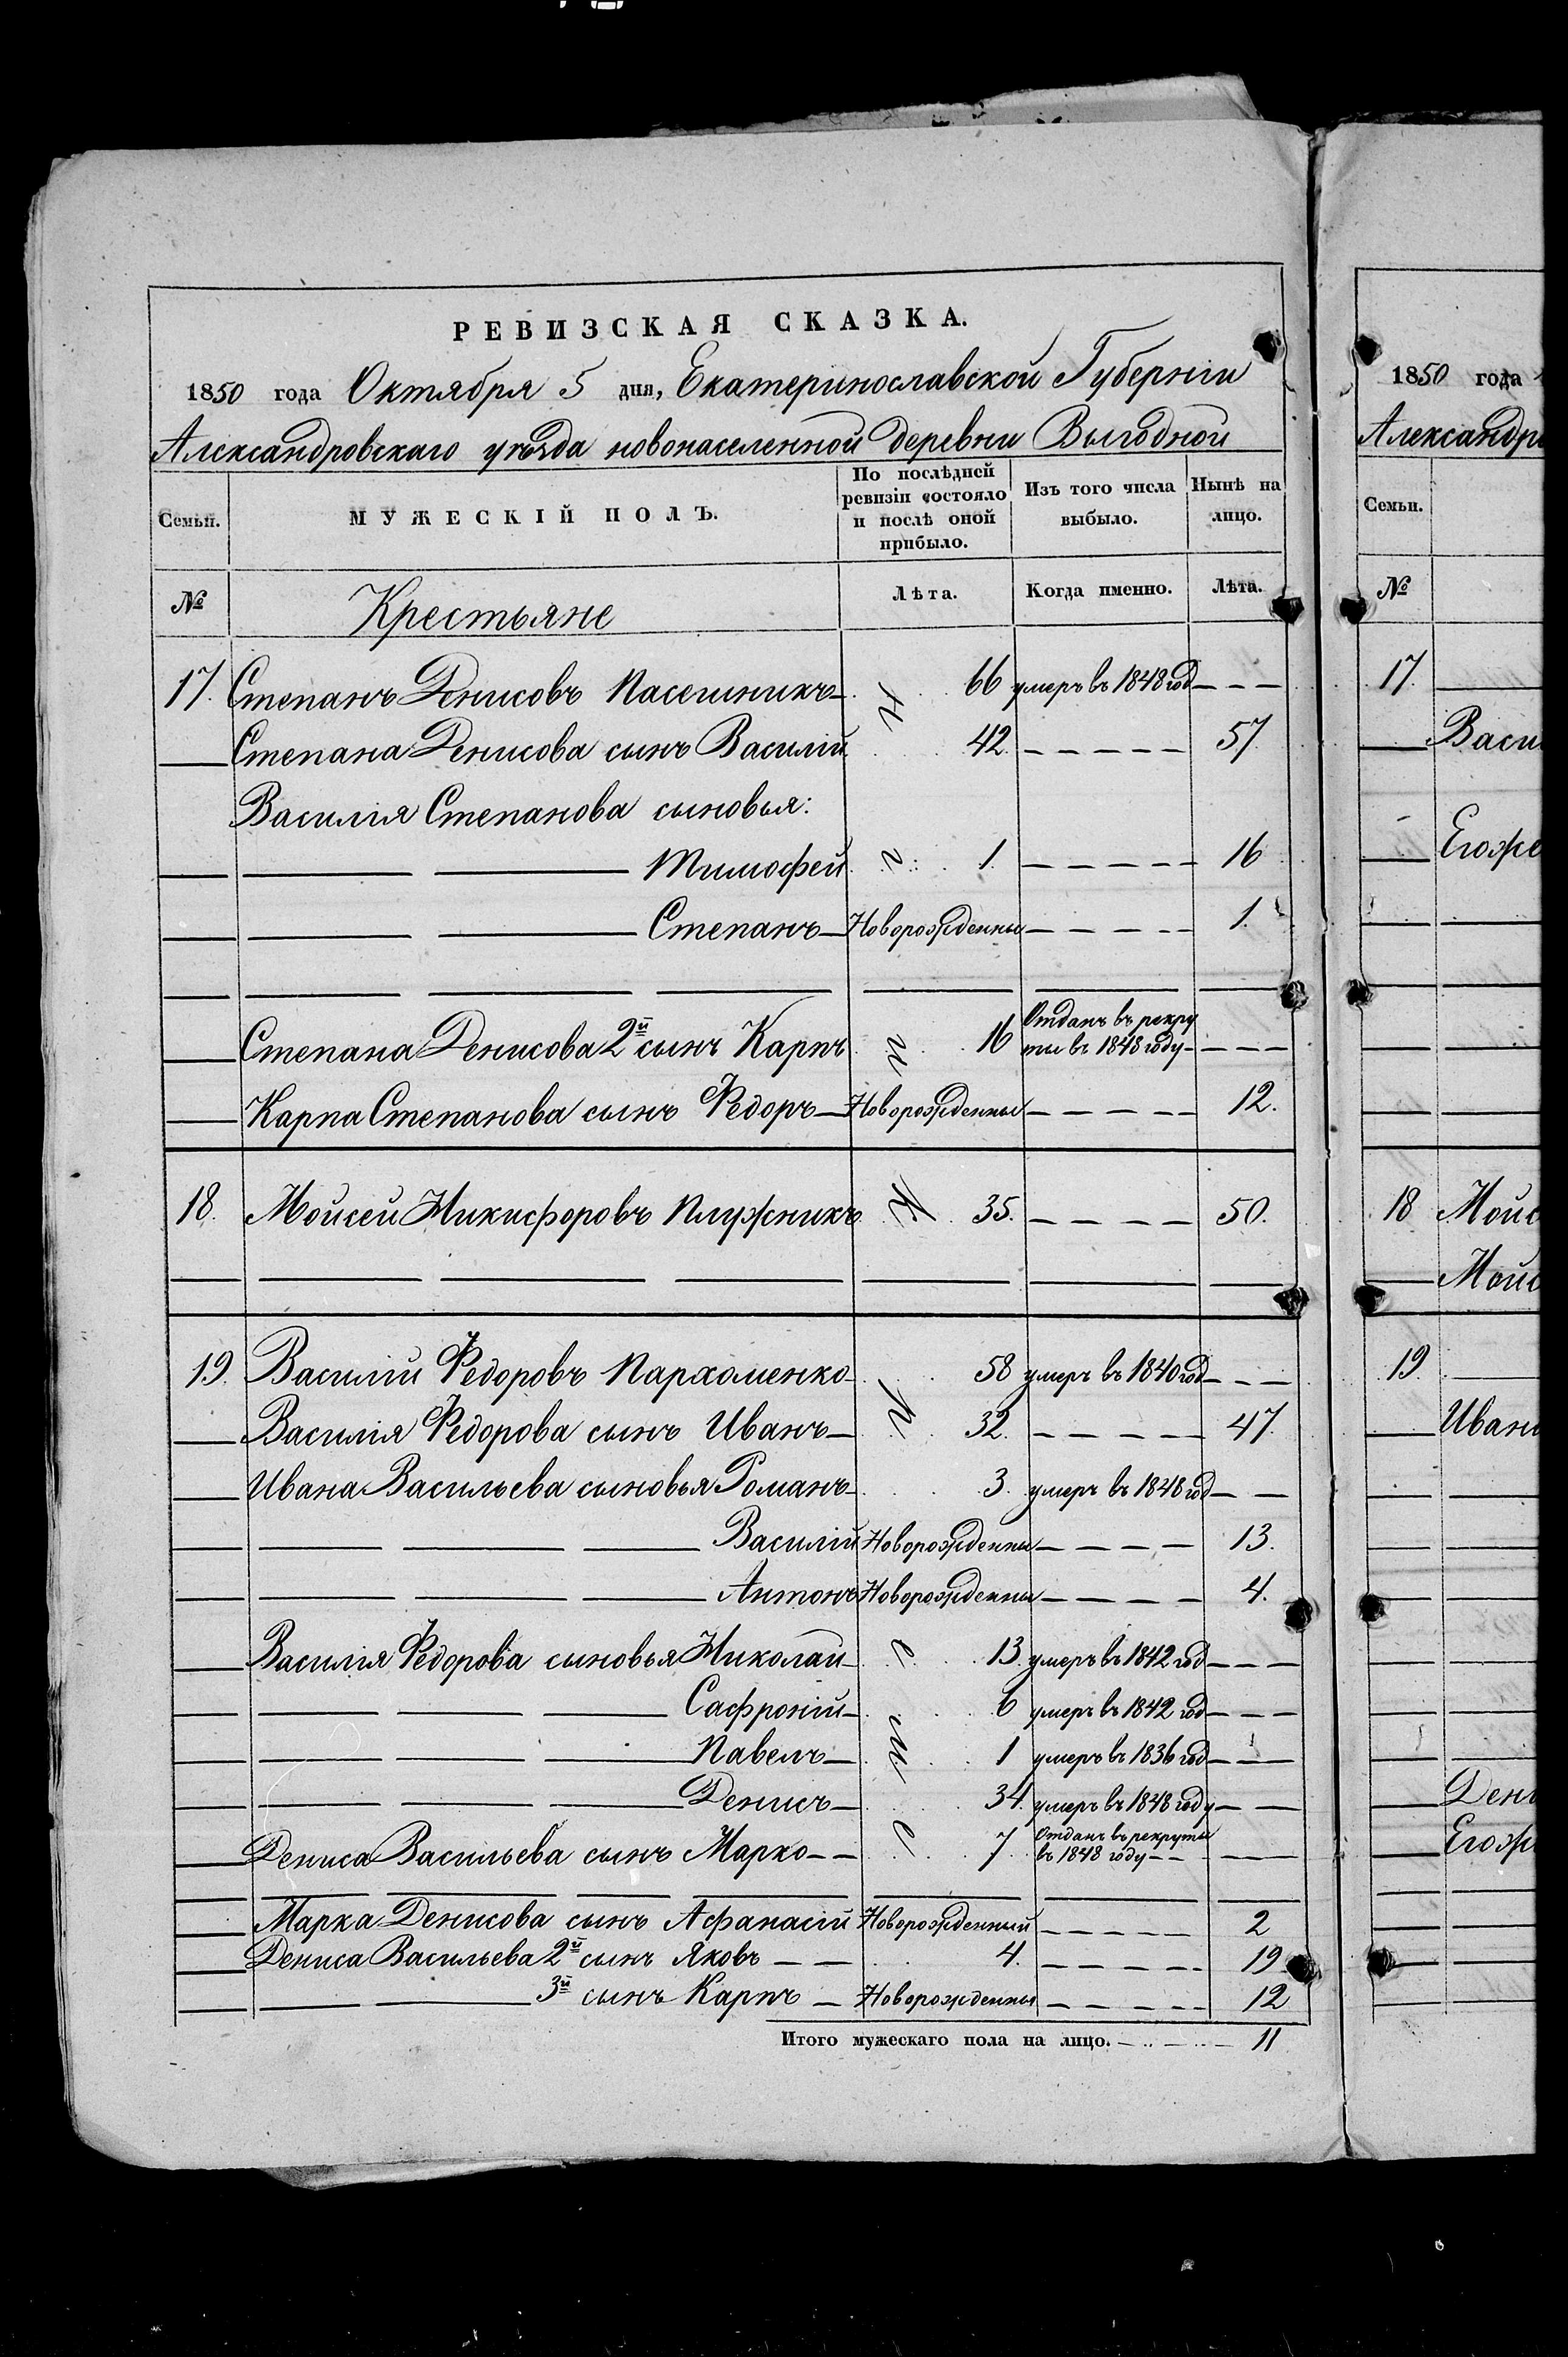 РЕВИЗСКАЯ СКАЗКА.
1850 года Октября 5 дня, Екатеринославской Губерніи
Александровскаго уѣзда новонаселенной деревни Выгодной
Семьи. МУЖЕСКІЙ ПОЛЪ. По послѣдней ревизіи состояло и послѣ оной прибыло. Изъ того числа выбыло. Нынѣ на лицо.
№ Крестьяне Лѣта. Когда именно. Лѣта.
17. Степанъ Денисовъ Пасешникъ 66 умеръ въ 1848 год
Степана Денисова сынъ Василій 42 57
Василія Степанова сыновья:
Тимофей 1. 16
Степанъ Новорожденны 1.
Степана Денисова 2й сынъ Карпъ 16 Отданъ въ рекру
ты въ 1848 году
Карпа Степанова сынъ Федоръ Новорожденны 12.
18. Мойсей Никифоровъ Плужникъ 35. 50.
19. Василій Федоровъ Пархоменко 58 умеръ въ 1840 год
Василія Федорова сынъ Иванъ 32. 47
Ивана Васильева сыновья Романъ 3. умеръ въ 1848 год
Василій Новорожденны 13.
Антонъ Новорожденны 4.
Василія Федорова сыновья Николай 13. умеръ въ 1842 год
Сафроній 6 умеръ въ 1842 год
Павелъ 1 умеръ въ 1836 год
Денисъ 34. умеръ въ 1848 году
Дениса Васильева сынъ Марко 7. Отданъ въ рекруты
въ 1848 году
Марка Денисова сынъ Афанасій Новорожденный 2
Дениса Васильева 2й сынъ Яковъ 4. 19
3й сынъ Карпъ Новорожденны 12
Итого мужескаго пола на лицо. 11
1850 года
Александро
Семьи.
№
17.
Васи
Егоже
18 Мойс
Мойс
19
Ивано
Дени
Егож